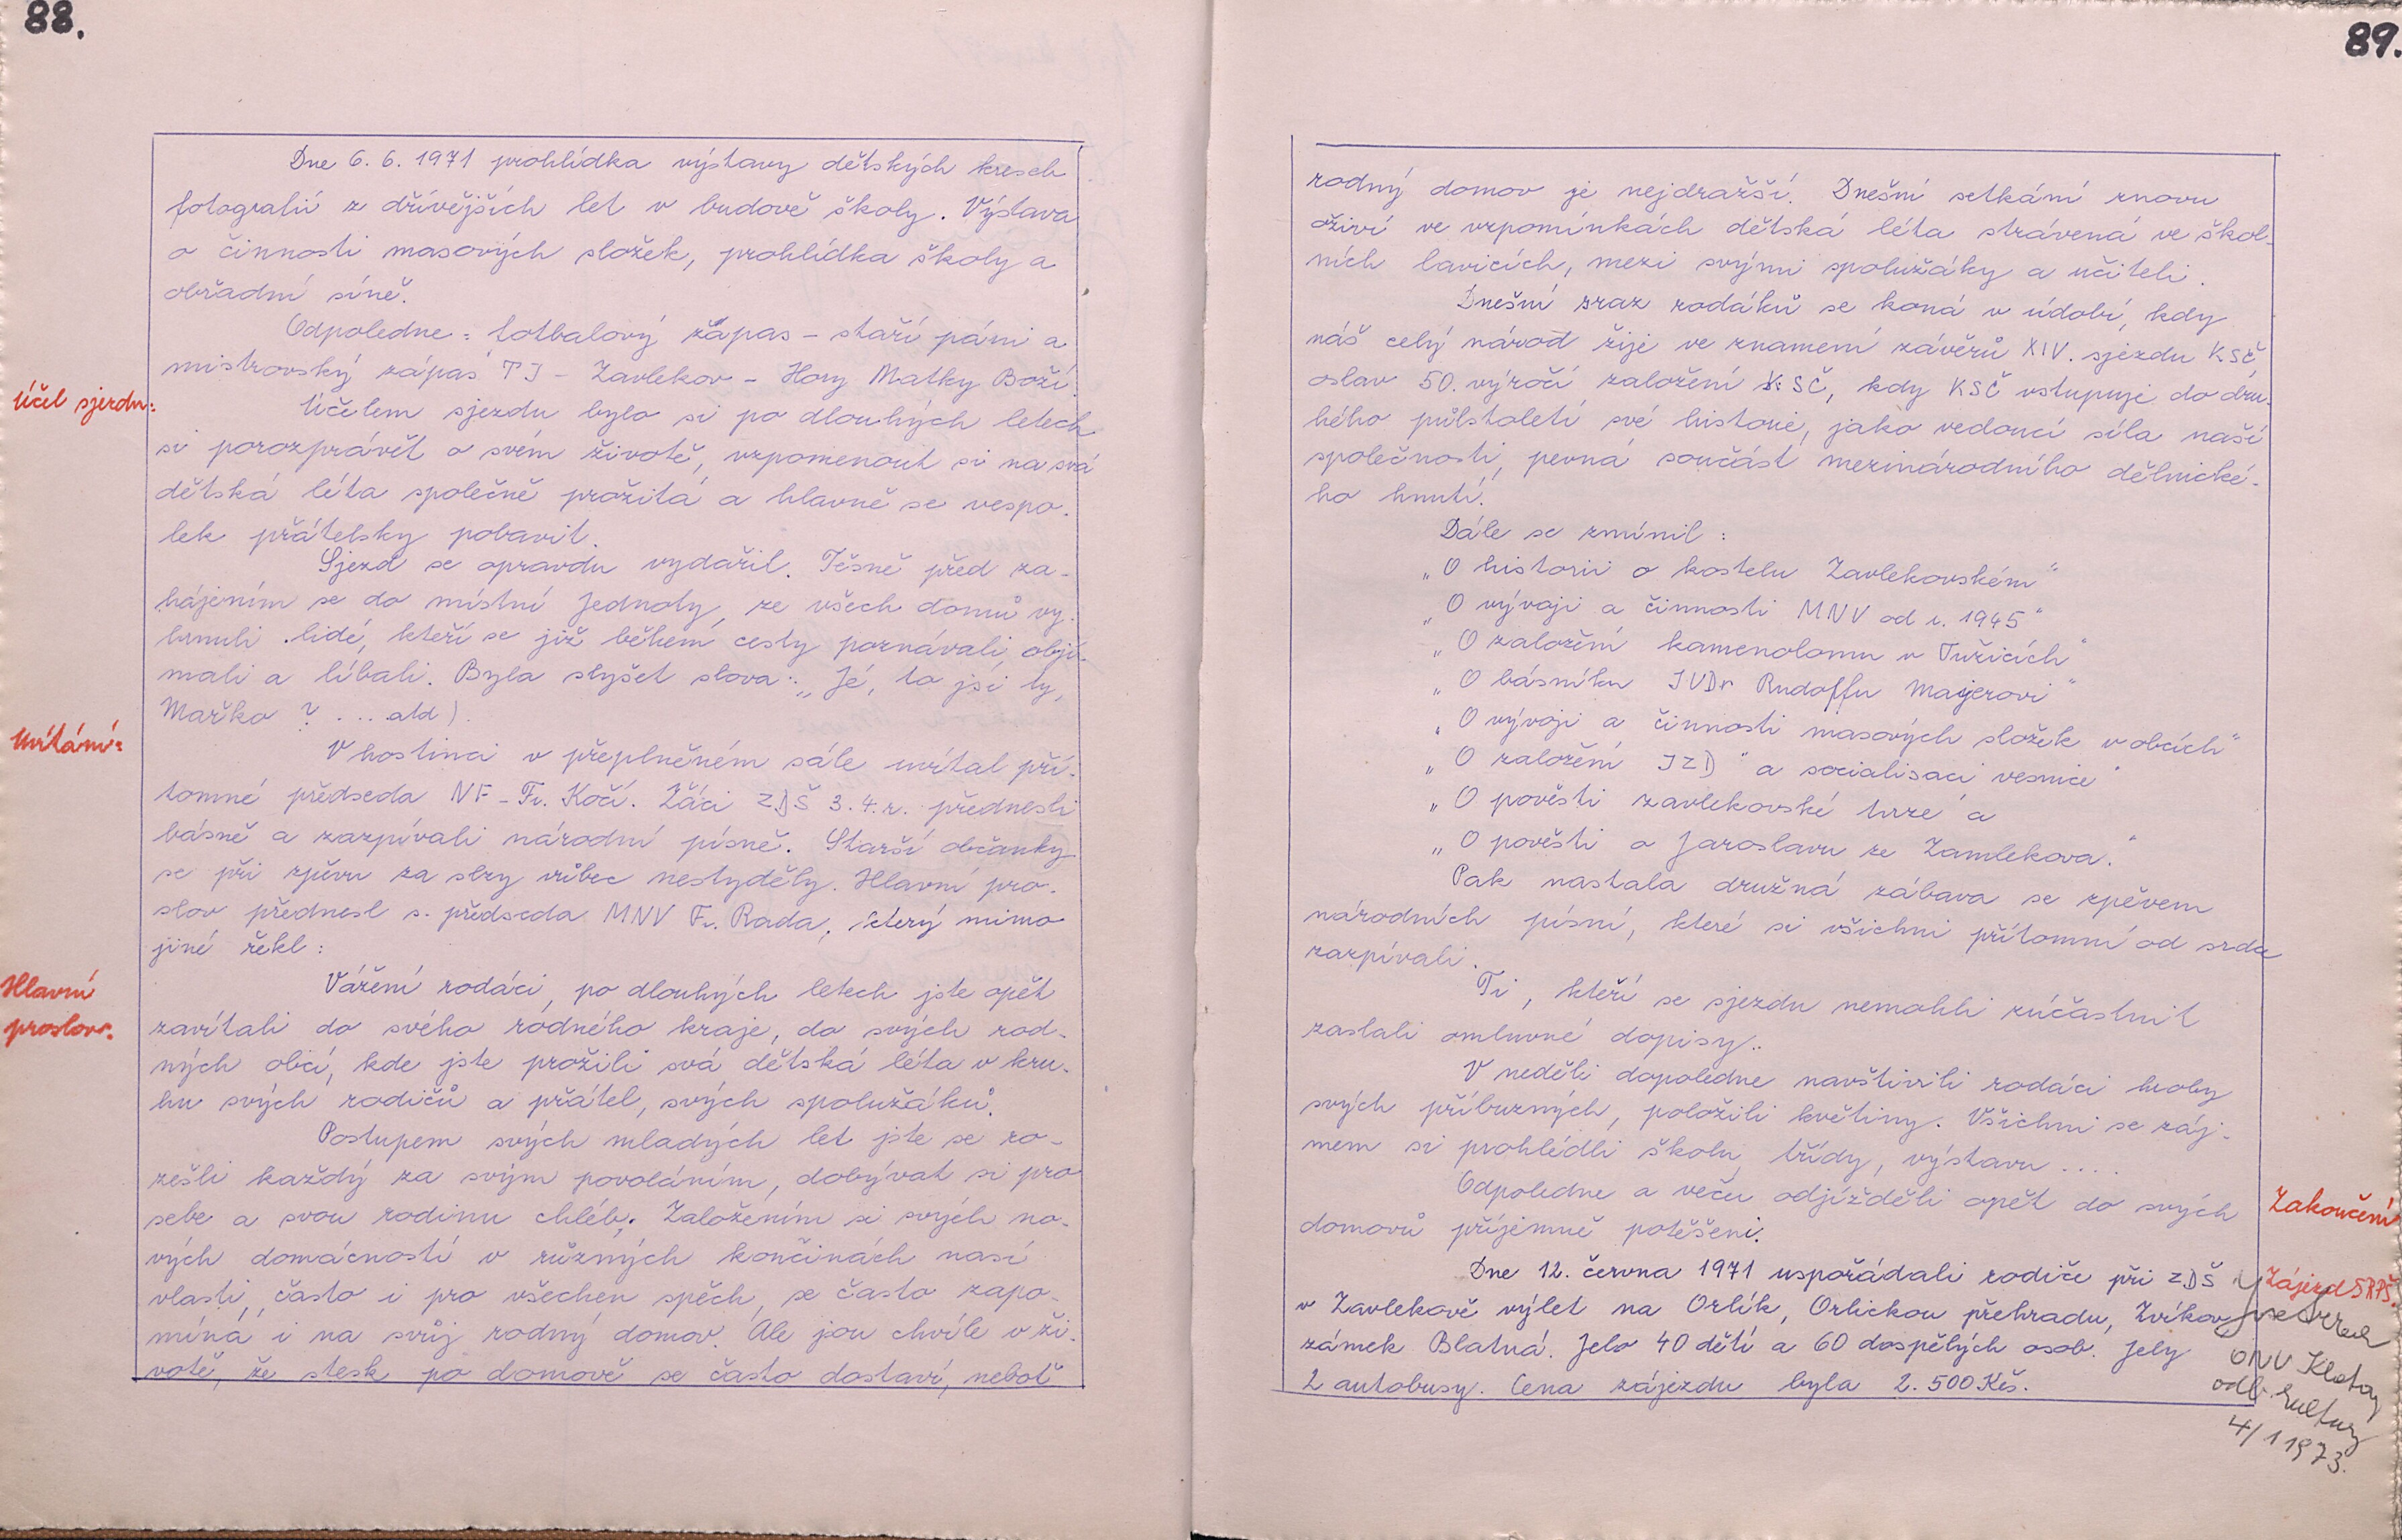 88.
Dne 6. 6. 1971 prohlídka výstavy dětských kreseb
fotografií z dřívějších let v budově školy. Výstava
o činnosti masových složek, prohlídka školy a
obřadní síně.
Odpoledne: fotbalový zápas – staří páni a
mistrovský zápas TJ – Zavlekov – Hory Matky Boží.
Účel sjezdu:
Účelem sjezdu bylo si po dlouhých letech
si porozprávět o svém životě, vzpomenout si na svá
dětská léta společně prožitá a hlavně se vespo-
lek přátelsky pobavit.
Sjezd se opravdu vydařil. Těsně před za-
hájením se do místní Jednoty, ze všech domů vy-
hrnuli lidé, kteří se již během cesty poznávali, objí-
mali a líbali. Byla slyšet slova: „Jé, to jsi ty,
Mařko ? ....atd).
Uvítání:
V hostinci v přeplněném sále uvítal pří-
tomné předseda NF – Fr. Kočí. Žáci ZDŠ 3.4.r. přednesli
básně a zazpívali národní písně. Starší občanky
se při zpěvu za slzy vůbec nestyděly. Hlavní pro-
slov přednesl s. předseda MNV Fr. Rada, který mimo
jiné řekl:
Hlavní
proslov.
Vážení rodáci, po dlouhých letech jste opět
zavítali do svého rodného kraje, do svých rod-
ných obcí, kde jste prožili svá dětská léta v kru-
hu svých rodičů a přátel, svých spolužáků.
Postupem svých mladých let jste se ro-
zešli každý za svým povoláním, dobývat si pro
sebe a svou rodinu chléb. Založením si svých no-
vých domácností v různých končinách naší
vlasti, často i pro všechen spěch, se často zapo-
míná i na svůj rodný domov. Ale jsou chvíle v ži-
votě, že stesk po domově se často dostaví, neboť
89.
rodný domov je nejdražší. Dnešní setkání znovu
oživí ve vzpomínkách dětská léta strávená ve škol-
ních lavicích, mezi svými spolužáky a učiteli.
Dnešní sraz rodáků se koná v údobí, kdy
náš celý národ žije ve znamení závěrů XIV. sjezdu KSČ
oslav 50. výročí založení KSČ, kdy KSČ vstupuje do dru-
hého půlstaletí své historie, jako vedoucí síla naší
společnosti, pevná součást mezinárodního dělnické-
ho hnutí.
Dále se zmínil:
„O historii o kostelu Zavlekovském"
„O vývoji a činnosti MNV od r. 1945"
„O založení kamenolomu v Tužicích"
„O básníku JUDr Rudolfu Mayerovi"
„O vývoji a činnosti masových složek v obcích"
„O založení JZD" a socialisaci vesnice"
„O pověsti zavlekovské tvrze a
„O pověsti o Jaroslavu ze Zamlekova."
Pak nastala družná zábava se zpěvem
národních písní, které si všichni přítomní od srdce
zazpívali.
Ti, kteří se sjezdu nemohli zúčastnit
zaslali omluvné dopisy..
V neděli dopoledne navštívili rodáci hroby
svých příbuzných, položili květiny. Všichni se záj-
mem si prohlédli školu, třídy, výstavu ....
Odpoledne a večer odjížděli opět do svých
domovů příjemně potěšeni.
Zakončení
Dne 12. června 1971 uspořádali rodiče při ZDŠ
Zájezd SRPŠ.
v Zavlekově výlet na Orlík, Orlickou přehradu, Zvíkov
zámek Blatná. Jelo 40 dětí a 60 dospělých osob. Jely
2 autobusy. Cena zájezdu byla 2.500 Kčs.
ONV Klatovy
odb. kultury
4/1 1973.